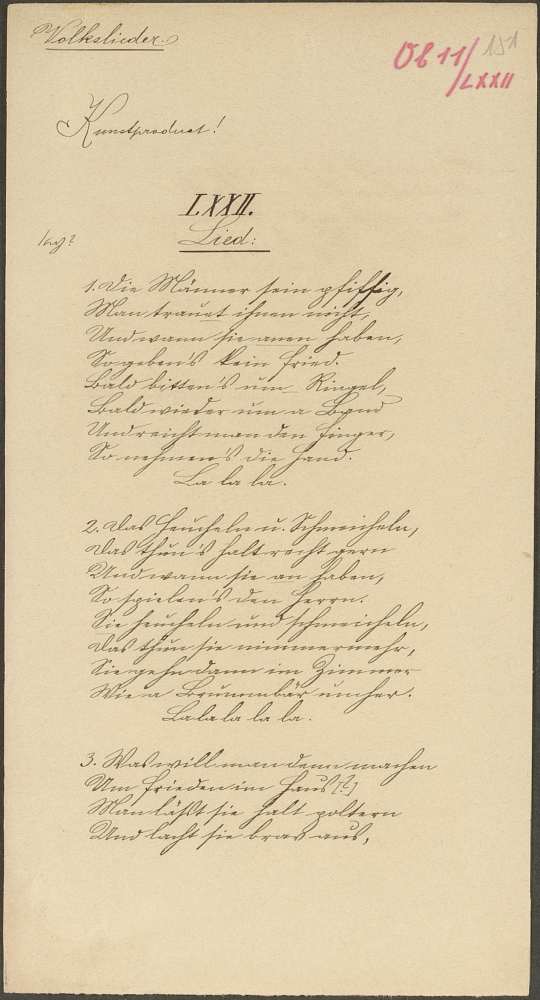 Volkslieder.
Ob 11/ 151
LXXII
Kunstproduct!
LXXII.
Lied:
1. Die Männer sein pfiffig,
Man trauet ihnen nicht,
Und wann sie anen haben,
So geben's kein Fried.
Bald bitten's um Ringel,
Bald wieder um a Band
Und reicht man den Finger,
So nehmen's die Hand.
La la la.
2. Das Heucheln u. Schmeicheln,
Das thun's halt recht gern
Und wann sie an haben,
So spielen's den Herrn.
Sie heucheln und schmeicheln,
Das thun sie nimmermehr,
Sie gehn dann im Zimmer
Wie a Brummbär umher.
La la la la la.
3. Was will man denn machen
Um Frieden im Haus [?]
Man läßt sie halt poltern
Und lacht sie brav aus,